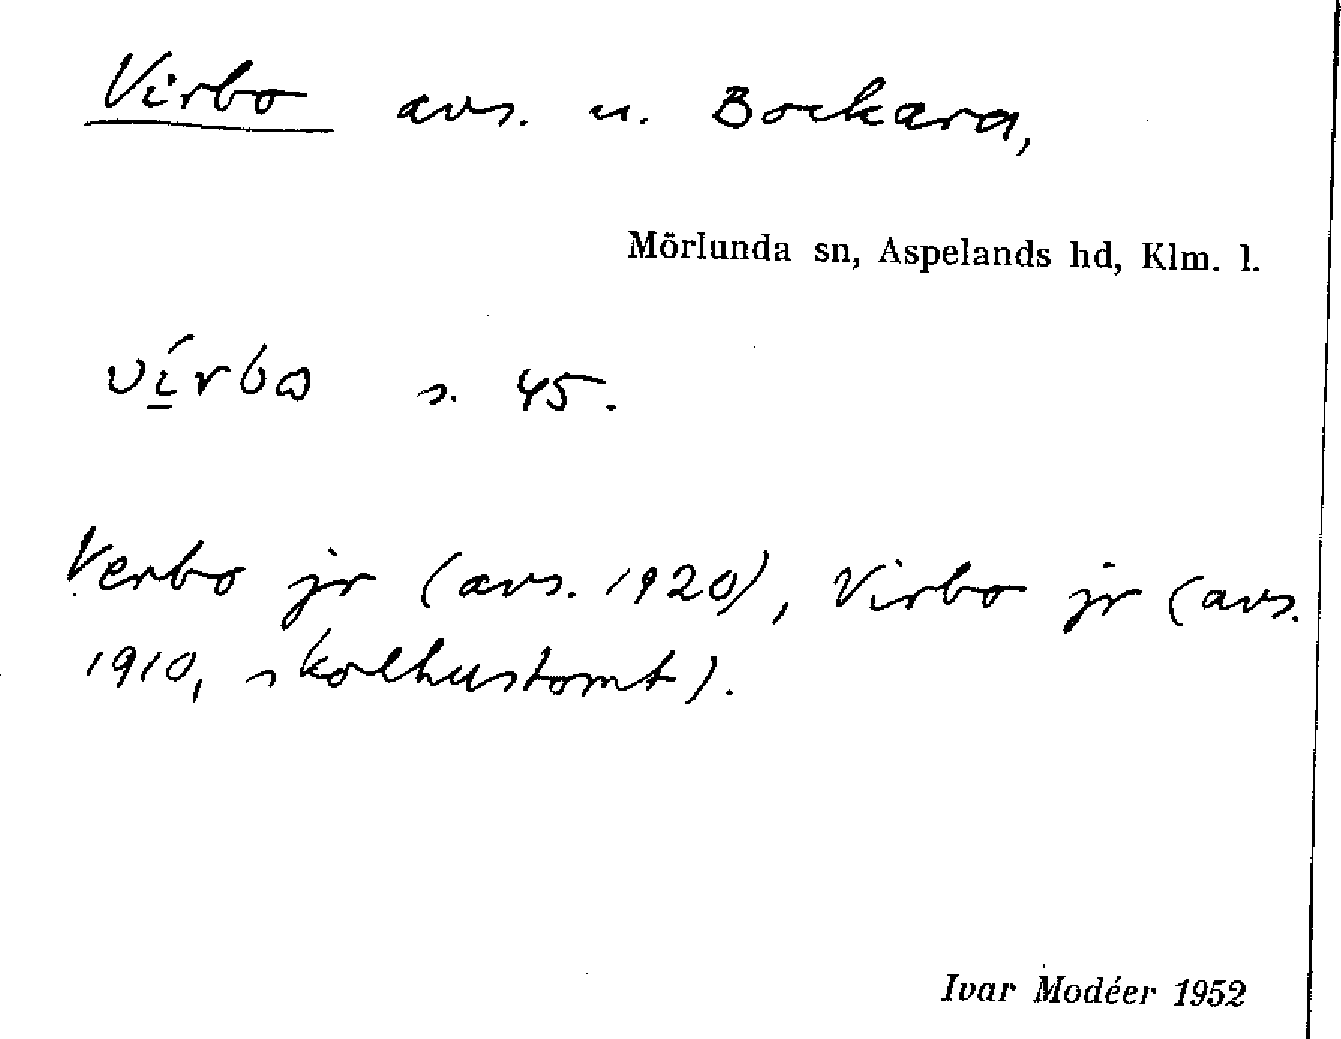 Virbo avs. u. Bockara,
Mörlunda sn, Aspelands hd, Klm. l.
vírbω s. 45.
Verbo jr (avs. 1920), Virbo jr (avs.
1910, skolhustomt).
Ivar Modéer 1952